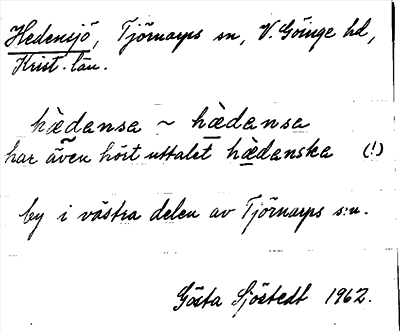 Hedensjö, Tjörnarps sn, V. Göinge hd,
Krist. län.
hèdansa ~ hèdansa
har även hört uttalet hèdanska (!)
by i västra delen av Tjörnarps s:n.
Gösta Sjöstedt 1962.